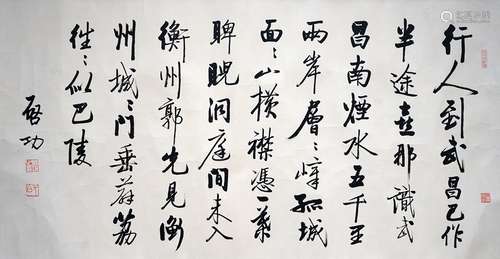 行人到武昌已作
半途喜那識武
昌南煙水五千里
兩岸層〻嶂孤城
面〻山橫襟憑一葉
睥睨洞庭間未入
衡州郭先見衡
州城〻門垂薜荔
往〻似巴陵
啓功